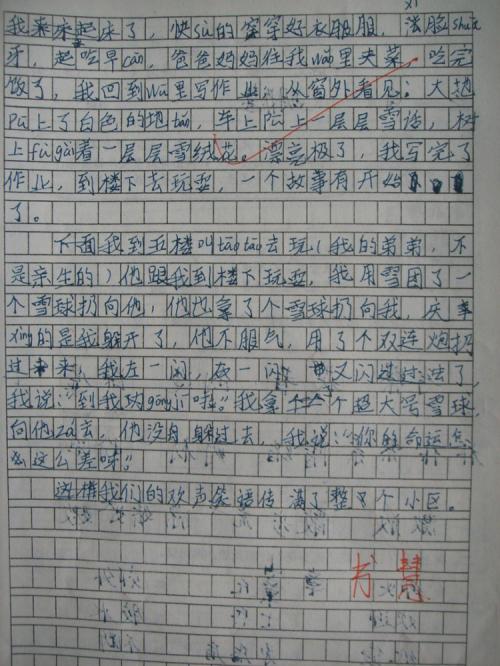 xǐ
我来来起床了，快sù的穿穿好衣服服，洗脸shuā
牙，起吃早cān，爸爸妈妈往我wǎn里夹菜，吃完
饭了，我回到wū里写作业，从窗外看见：大地
pū上了白色的地tǎn，车上pū上一层层雪活，树
上fù gài着一层层雪绒花。漂亮极了，我写完了
作业，到楼下去玩耍，一个故事有开始
了。
下面我到五楼叫tāo tāo去玩（我的弟弟，不
是亲生的）他跟我到楼下玩耍，我用雪团了一
个雪球扔向他，他也拿了个雪球扔向我，庆幸
xìng的是我躲开了，他不服气，用了个双连炮扔
过来，我左一闪，右一闪，又闪过过法了，
我说：“到我功gōng了啦。”我拿个一个超大号雪球，
向他zá去，他没有躲过去，我说：“你的命运怎
么这么差呀。”
这样我们的欢声笑语传满了整个小区。
书慧